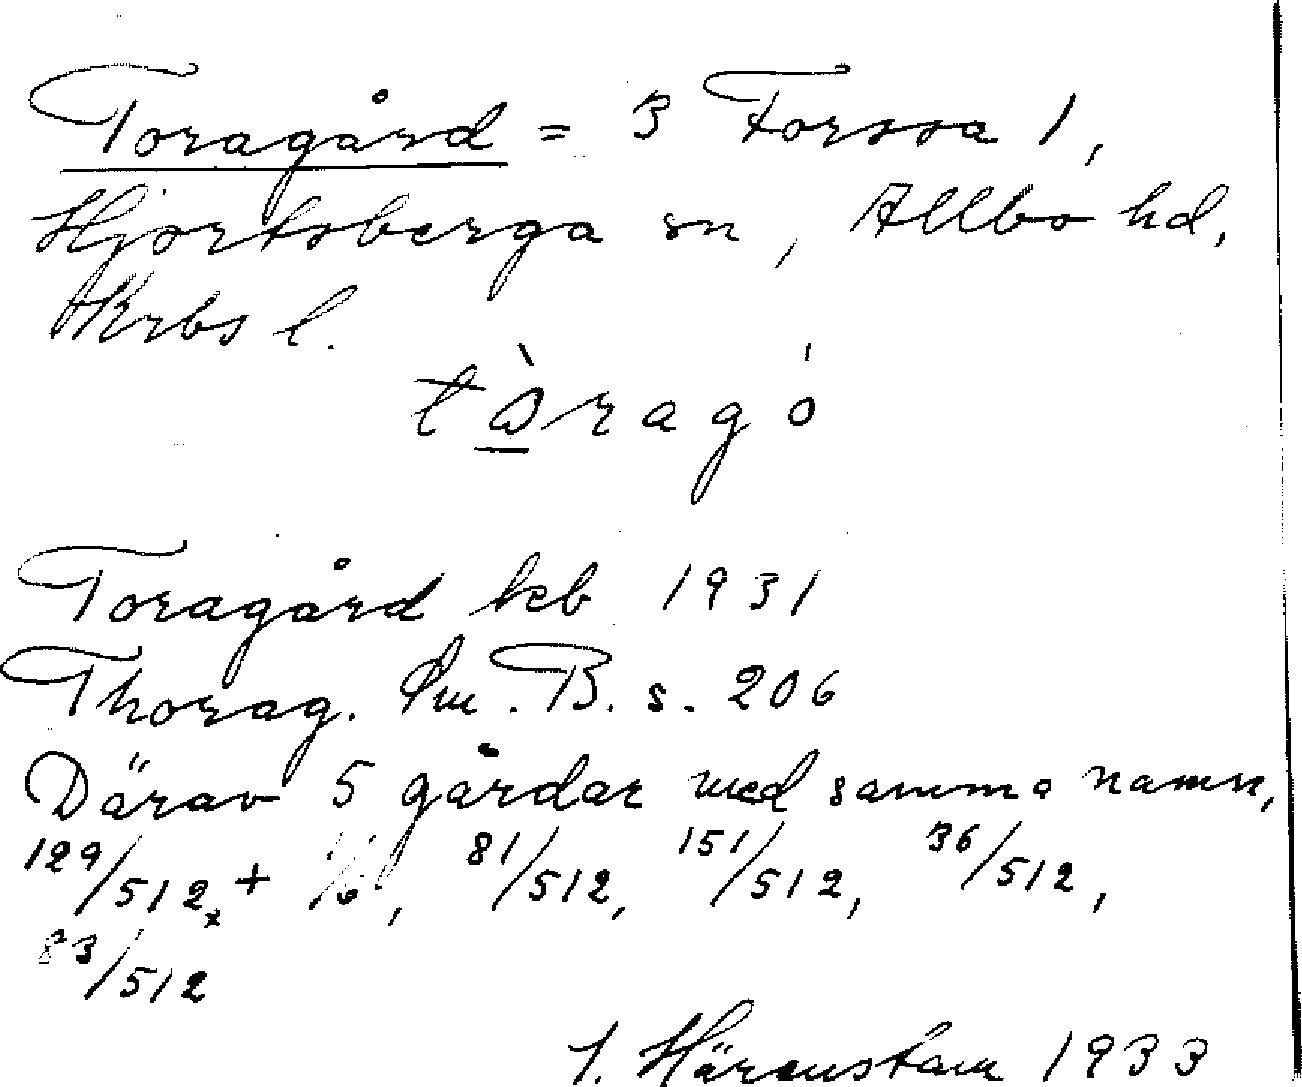 Toragård = 3 Forssa 1,
Hjortsberga sn, Allbo hd,
Krbs l.
tòragó
Toragård kb 1931
Thorag. Sm. B. s. 206
Därav 5 gårdar med samma namn,
129/512 + 1/6, 81/512, 151/512, 36/512,
83/512
Härenstam 1933